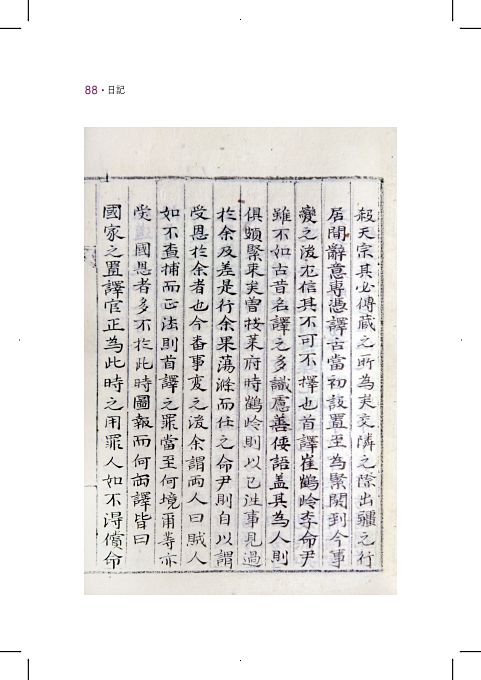 88 • 日記
殺天宗其必傳藏之所為矣交隣之際出疆之行
居間辭意專憑譯舌當初設置至為緊関到今事
變之後尤信其不可不擇也首譯崔鶴岭李命尹
雖不如古昔名譯之多識慮善倭語盖其為人則
俱頗緊束矣曽按莱府時鶴岭則以已徃事見過
於余及差是行余果蕩滌而任之命尹則自以謂
受恩於余者也今番事變之後余謂両人曰賊人
如不查捕而正法則首譯之罪當至何境甭等亦
受 國恩者多不於此時圖報而何両譯皆曰
國家之置譯官正為此時之用罪人如不得償命